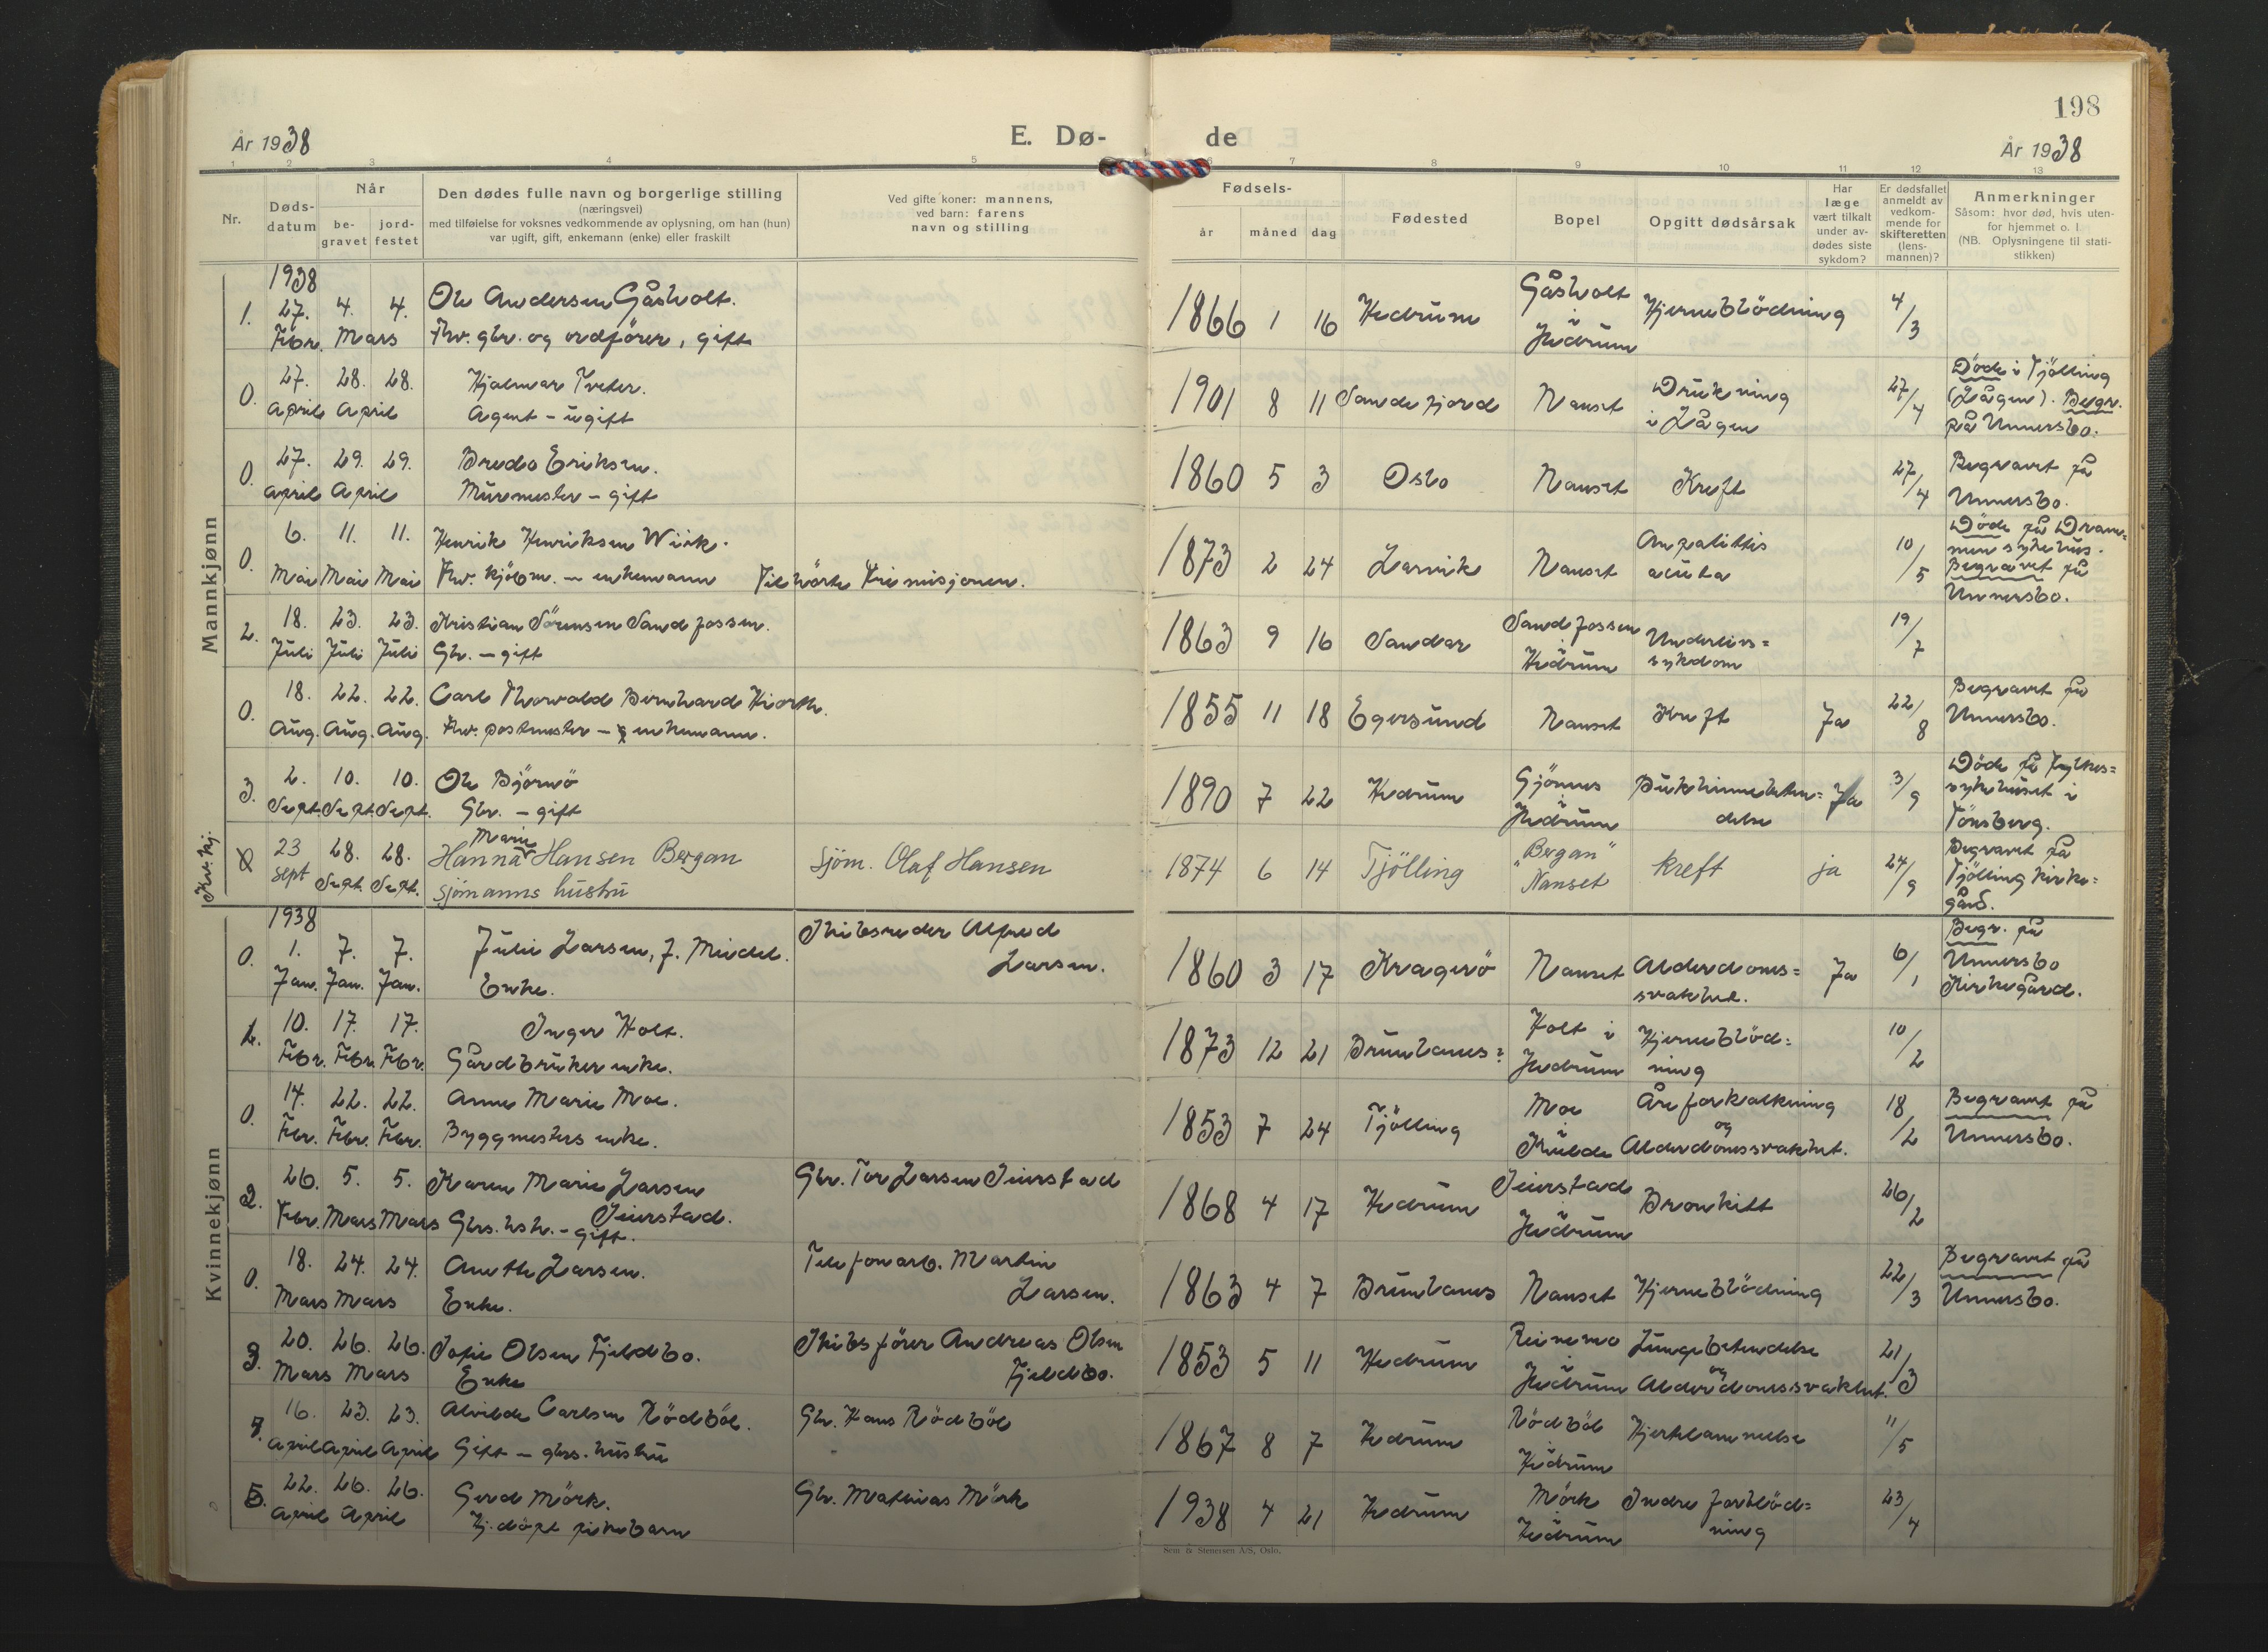 198
År 1938
E. Dø-
de
År 1938
1 2 3 4 5 6 7 8 9 10 11 12 13
Nr.
Døds-
datum
Når
be-
gravet
jord-
festet
Den dødes fulle navn og borgerlige stilling
(næringsvei)
med tilføielse for voksnes vedkommende av oplysning, om han (hun)
var ugift, gift, enkemann (enke) eller fraskilt
Ved gifte koner: mannens,
ved barn: farens
navn og stilling
Fødsels-
år måned dag
Fødested
Bopel
Opgitt dødsårsak
Har
læge
vært tilkalt
under av-
dødes siste
sykdom?
Er dødsfallet
anmeldt av
vedkom-
mende for
skifteretten
(lens-
mannen)?
Anmerkninger
Såsom: hvor død, hvis uten-
for hjemmet o. l.
(NB. Oplysningene til stati-
stikken)
Mannkjønn
1938
1. 27. 4. 4. Ole Andersen Gåsholt. 1866 1 16 Hedrum Gåsholt Hjerneblödning 4/3
Febr. Mars Fhv. gbr. og ordförer, gift i
Hedrum
0. 27. 28. 28. Hjalmar Tveter. 1901 8 11 Sandefjord Nanset Drukning 27/4 Döde i Tjölling
April April Agent - ugift i Lågen (Lågen). Begr.
på Undersbo.
0. 27. 29. 29. Bredo Eriksen. 1860 5 3 Oslo Nanset Kreft 27/4 Begravet på
April April Murmester - gift Undersbo.
0. 6. 11. 11. Henrik Henriksen Wiik. 1873 2 24 Larvik Nanset 10/5 Döde på Dram=
Mai Mai Mai Fhv. kjöbm. - enkemann Tilhörte Frimisjonen. acuta men sykehus.
Begravet på
Undersbo.
2. 18. 23. 23. Kristian Sörensen Sandfossen. 1863 9 16 Sandar Sandfossen Underlivs= 19/7
Juli Juli Juli Gbr. - gift Hedrum sykdom
0. 18. 22. 22. Carl Thorvald Bernhard Hiorth. 1855 11 18 Egersund Nanset Kreft Ja 22/8 Begravet på
Aug. Aug. Aug. Fhv. postmester - enkemann. Undersbo.
3. 2. 10. 10. Ole Björnö 1890 7 22 Hedrum Gjönnes Bukhinnebeten= Ja 3/9 Döde på Fylkes=
Sept. Sept. Sept. Gbr. - gift i delse sykehuset i
Hedrum Tönsberg.
Kv.kj.
0 23 28. 28. Hanna Marie Hansen Bergan sjöm. Olaf Hansen 1874 6 14 Tjölling "Bergan" kreft ja 24/9 Begravet på
sept Sept. Sept. sjömanns hustru Nanset Tjölling kirke=
gård.
Kvinnekjønn
1938
0. 1. 7. 7. Julie Larsen, f. Meidel. Skibsreder Alfred 1860 3 17 Kragerö Nanset Alderdoms= Ja 6/1 Begr. på
Jan. Jan. Jan. Enke. Larsen. svakhet. Undersbo
Kirkegård.
1. 10. 17. 17. Inger Holt. 1873 12 21 Brunlanes Holt i Hjerneblöd= 10/2
Febr. Febr. Febr. Gårdbrukerenke. Hedrum ning
0. 14. 22. 22. Anne Marie Moe. 1853 7 24 Tjölling Moe Åreforkalkning 18/2 Begravet på
Febr. Febr. Febr. Byggmesters enke. i og Undersbo.
Alderdomssvakhet.
2. 26. 5. 5. Karen Marie Larsen Gbr. Tor Larsen Seierstad 1868 4 17 Hedrum Seierstad Bronkitt 26/2
Febr. Mars Mars Gbrs. hstr. - gift. Seierstad. i Hedrum
0. 18. 24. 24. Anette Larsen. Telefonarb. Martin 1863 4 7 Brunlanes Nanset Hjerneblödning 22/3 Begravet på
Mars Mars Enke. Larsen. Undersbo.
3. 20. 26. 26. Sofie Olsen Fjeldbo. Skibsförer Andreas Olsen 1853 5 11 Hedrum Reinemo Lungebetendelse 21/3
Mars Mars Enke Fjeldbo. i Hedrum og Alderdomssvakhet.
4. 16. 23. 23. Alvilde Carlsen Rödböl. Gbr. Hans Rödböl 1867 8 7 Hedrum Rödböl Hjertelammelse 11/5
April April April Gift - gbrs. hustru i Hedrum
5. 22. 26. 26. Gerd Mörk. Gbr. Mathias Mörk 1938 4 21 Hedrum Mörk Indre forblöd= 23/4
April April Hj. döpt pikebarn i Hedrum ning
Sem & Stenersen A/S, Oslo.